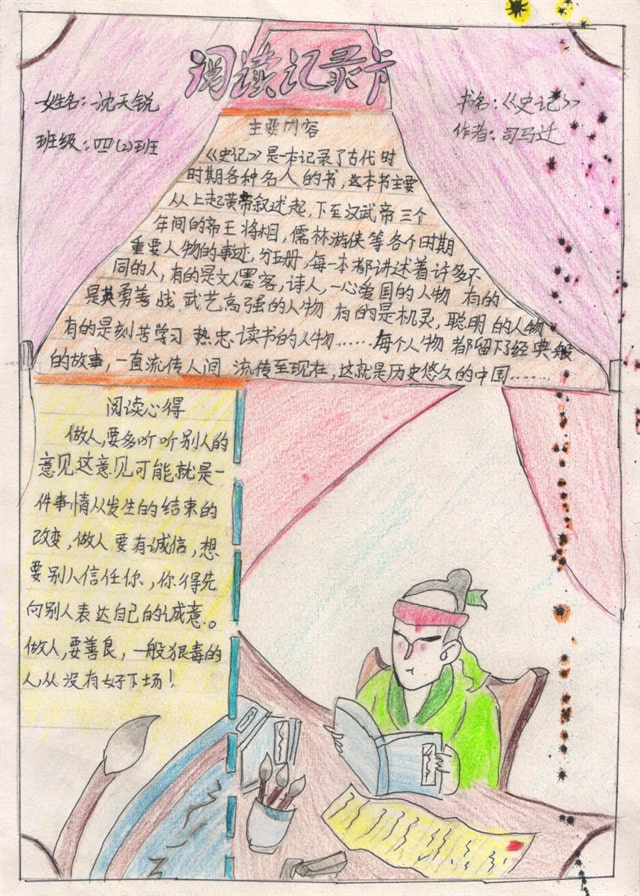 阅读记录卡
姓名：沈天锐
班级：四(2)班
书名：《史记》
作者：司马迁
主要内容
《史记》是本记录了古代时
时期各种名人的书，这本书主要
从上起黄帝叙述起，下至汉武帝三个
年间的帝王将相，儒林游侠等各个时期
重要人物的事迹，分五册，每一本都讲述着许多不
同的人，有的是文人墨客，诗人，一心爱国的人物 有的
是英勇善战 武艺高强的人物 有的是机灵，聪明的人物
有的是刻苦学习 热忠读书的人物……每个人物都留下了经典般
的故事，一直流传人间 流传至现在，这就是历史悠久的中国……
阅读心得
做人，要多听听别人的
意见这意见可能就是一
件事情从发生的结束的
改变，做人要有诚信，想
要别人信任你，你得先
向别人表达自己的诚意。
做人，要善良，一般狠毒的
人，从没有好下场！